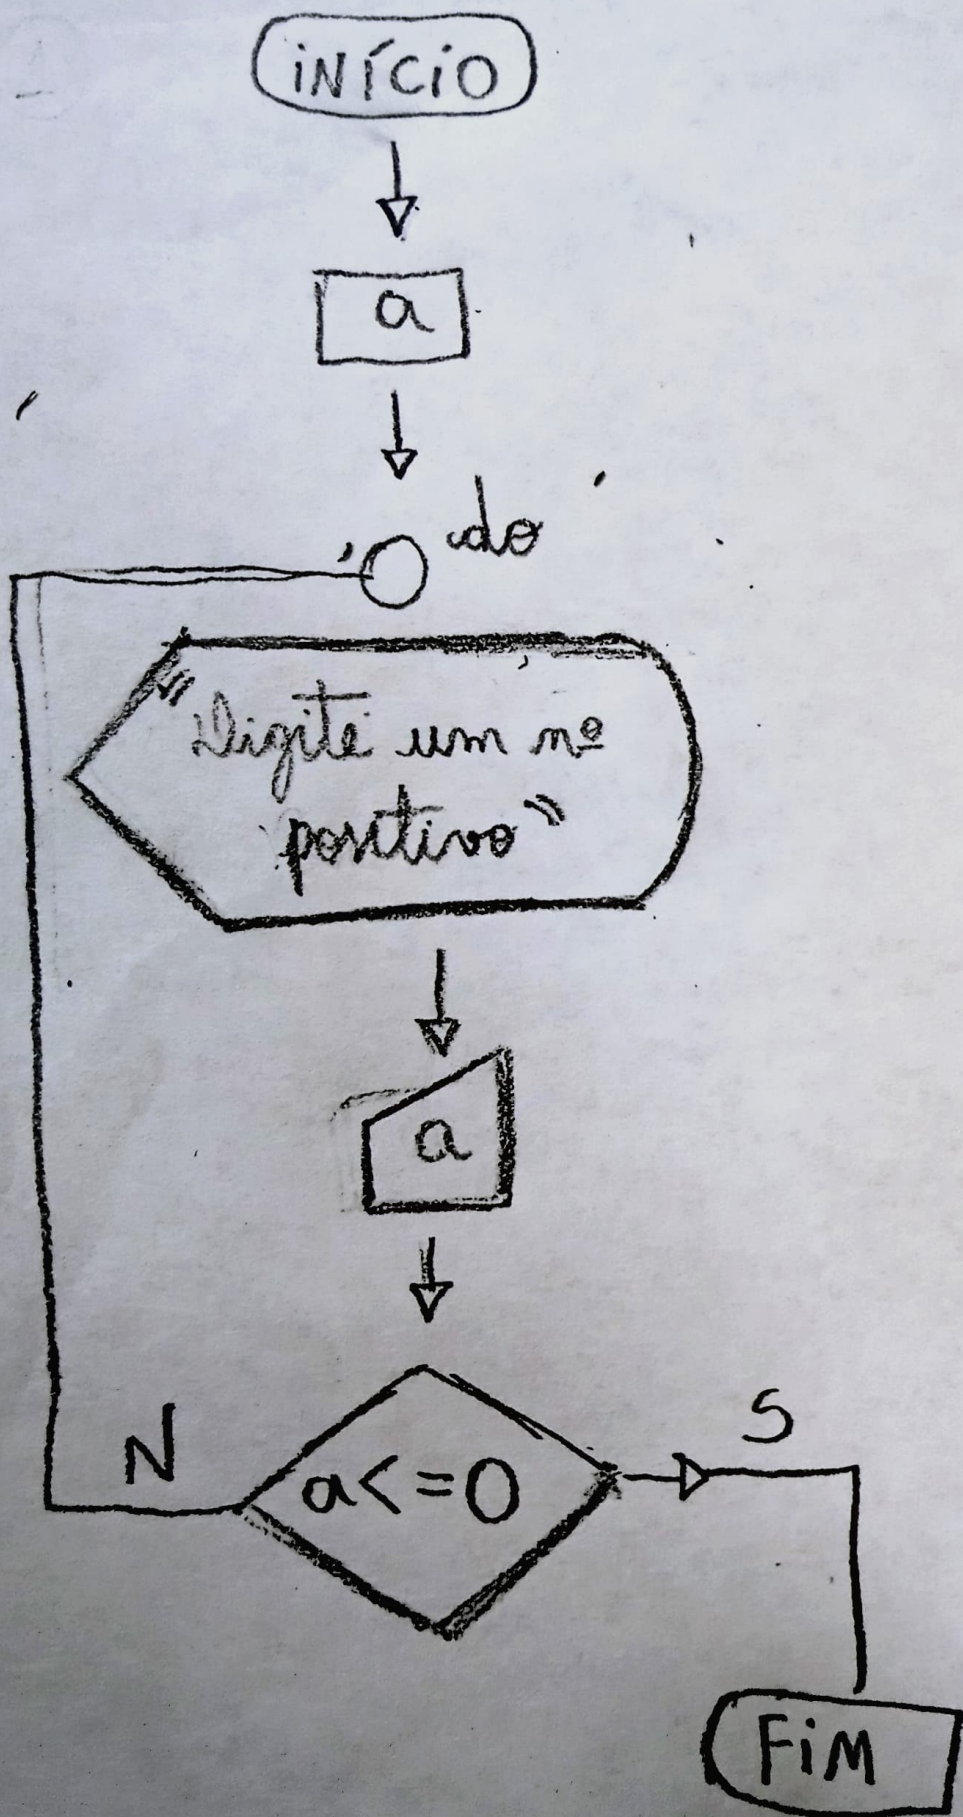 INÍCIO
a
do
"Digite um nº
positivo"
a
N
S
a<=0
FIM